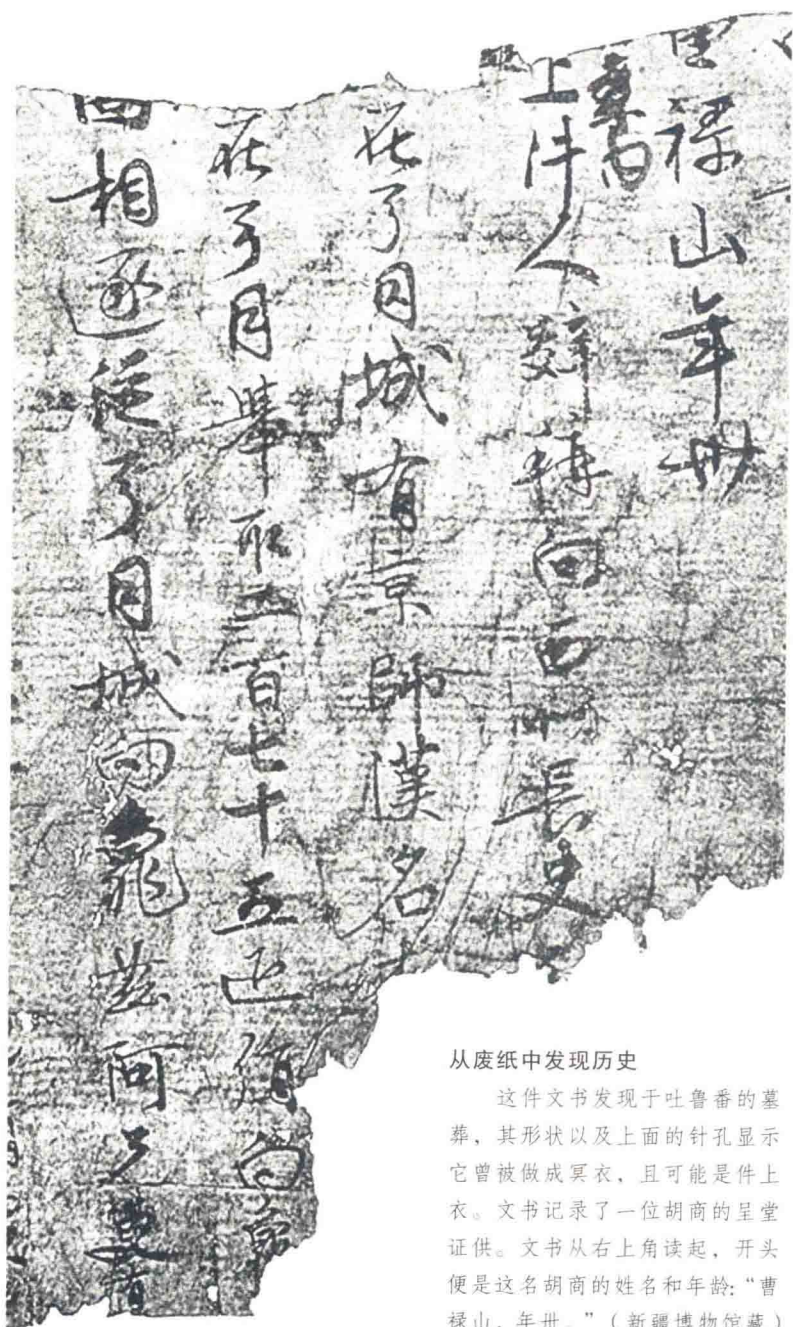 祿山年卅
上件人辭稱向西州長史
在弓月城有京師漢名
在弓月舉取二百七十五疋絹向龜
相逐從弓月城向龜茲阿兄
从废纸中发现历史
这件文书发现于吐鲁番的墓
葬，其形状以及上面的针孔显示
它曾被做成冥衣，且可能是件上
衣。文书记录了一位胡商的呈堂
证供。文书从右上角读起，开头
便是这名胡商的姓名和年龄：“曹
禄山，年卅。”（新疆博物馆藏）